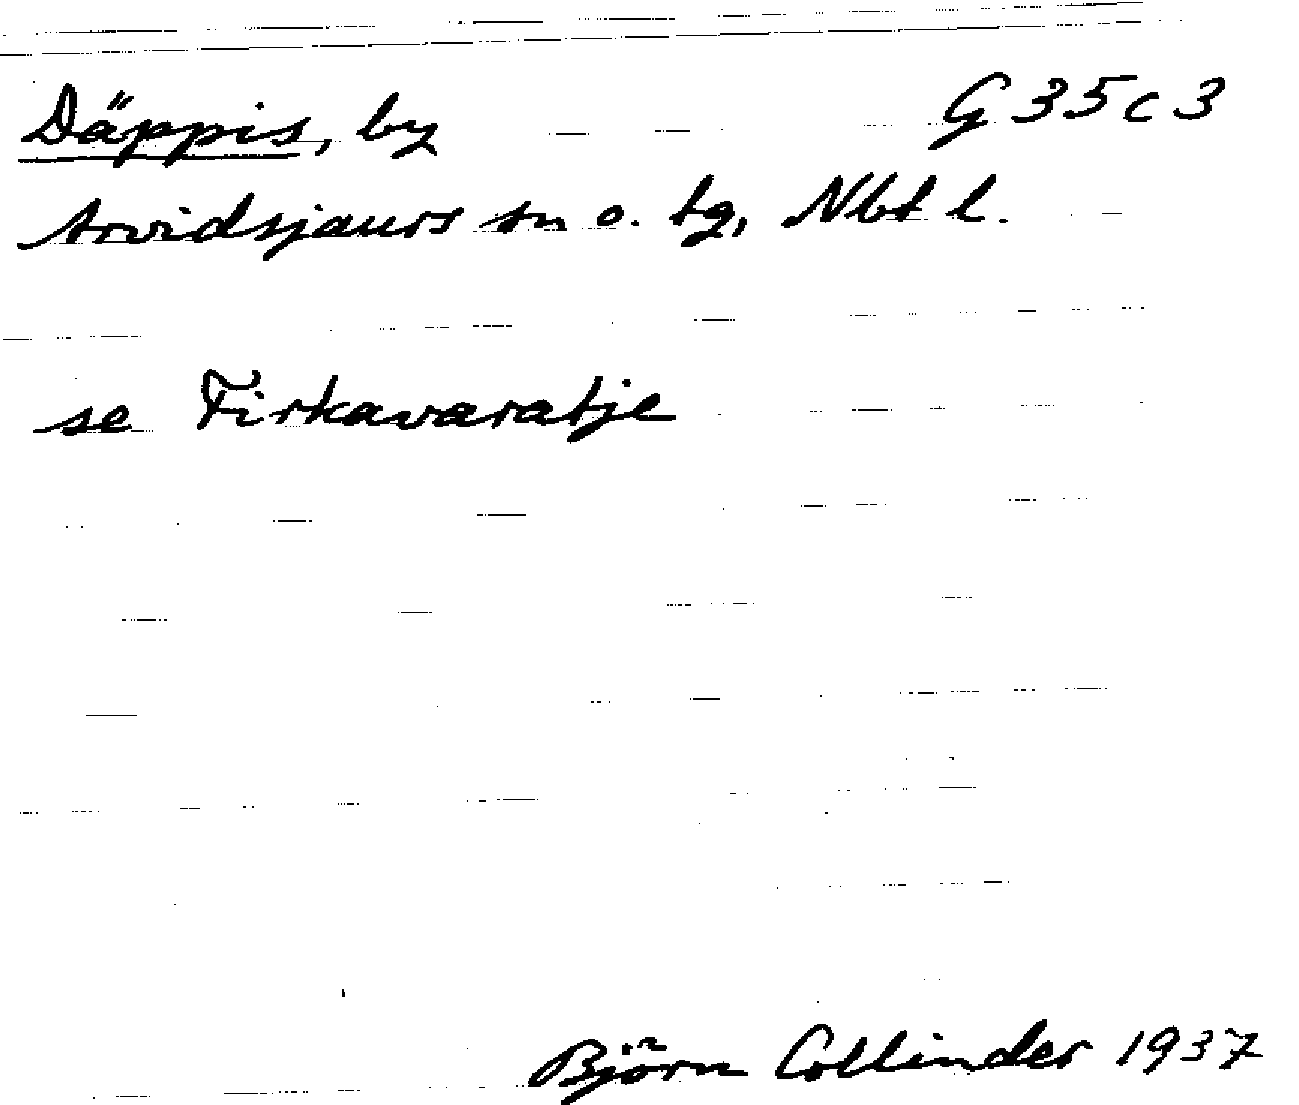 Däppis, by G 35 c 3
Arvidsjaurs sn o. tg, Nbt l.
se Firkavaratje
Björn Collinder 1937